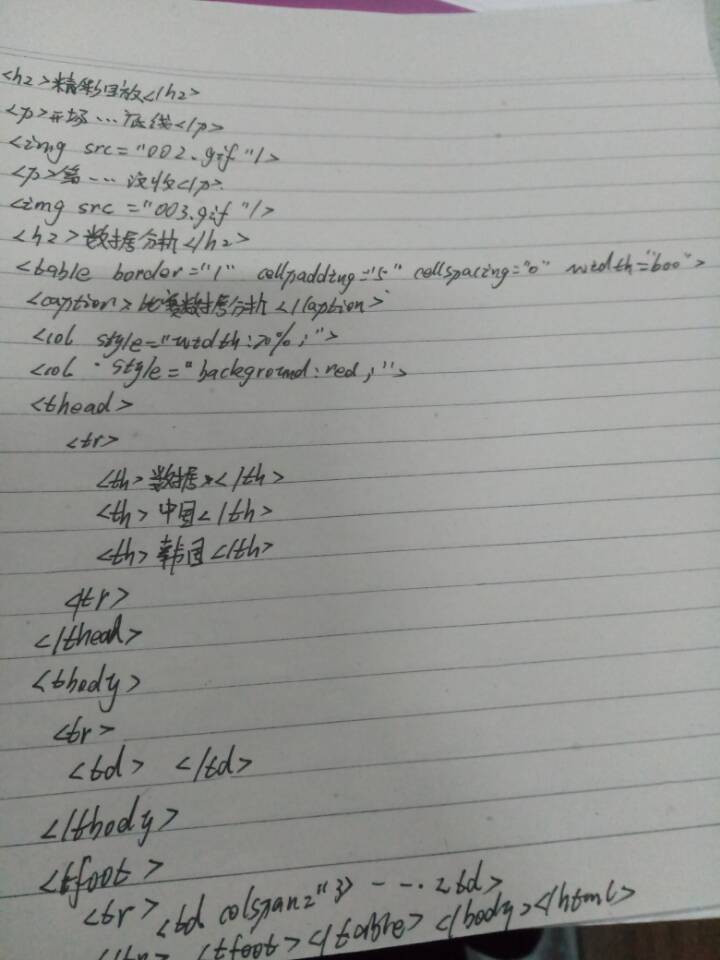 <h2>精彩回放</h2>
<p>开场...底线</p>
<img src="002.gif"/>
<p>第...没收</p>
<img src="003.gif"/>
<h2>数据分析</h2>
<table border="1" cellpadding="5" cellspacing="0" width="600">
<caption>比赛数据分析</caption>
<col style="width:20%;">
<col style="background:red;">
<thead>
<tr>
<th>数据</th>
<th>中国</th>
<th>韩国</th>
<tr>
</thead>
<tbody>
<tr>
<td> </td>
</tbody>
<tfoot>
<tr> <td colspan="3> ----. td>
<tfoot></table></body></html>